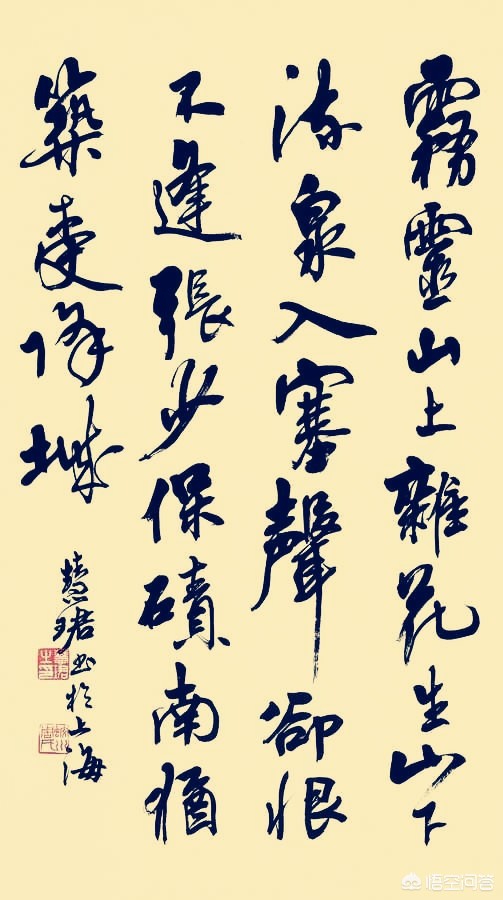 霧靈山上雜花生山下
流泉入塞聲卻恨
不逢張少保磧南猶
築受降城
慧珺书於上海
悟空问答